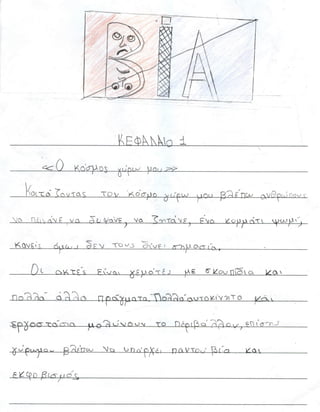 ΒΙΑ
ΚΕΦΑΛΑΙΟ 1
«Ο κόσμος γύρω μου»
Κοιτάζοντας τον κόσμο γύρω μου βλέπω ανθρώπους
να πεινάνε, να διψάνε, να ζητάνε, ένα κομμάτι ψωμί,
κανείς όμως δεν τους δίνει σημασία.
Οι ακτές είναι γεμάτες με σκουπίδια και
πολλά άλλα πράγματα. Πολλά αυτοκίνητα και
εργοστάσια μολύνουν το περιβάλλον, επίσης
γύρω μου βλέπω να υπάρχει παντού βία και
εκφοβισμός